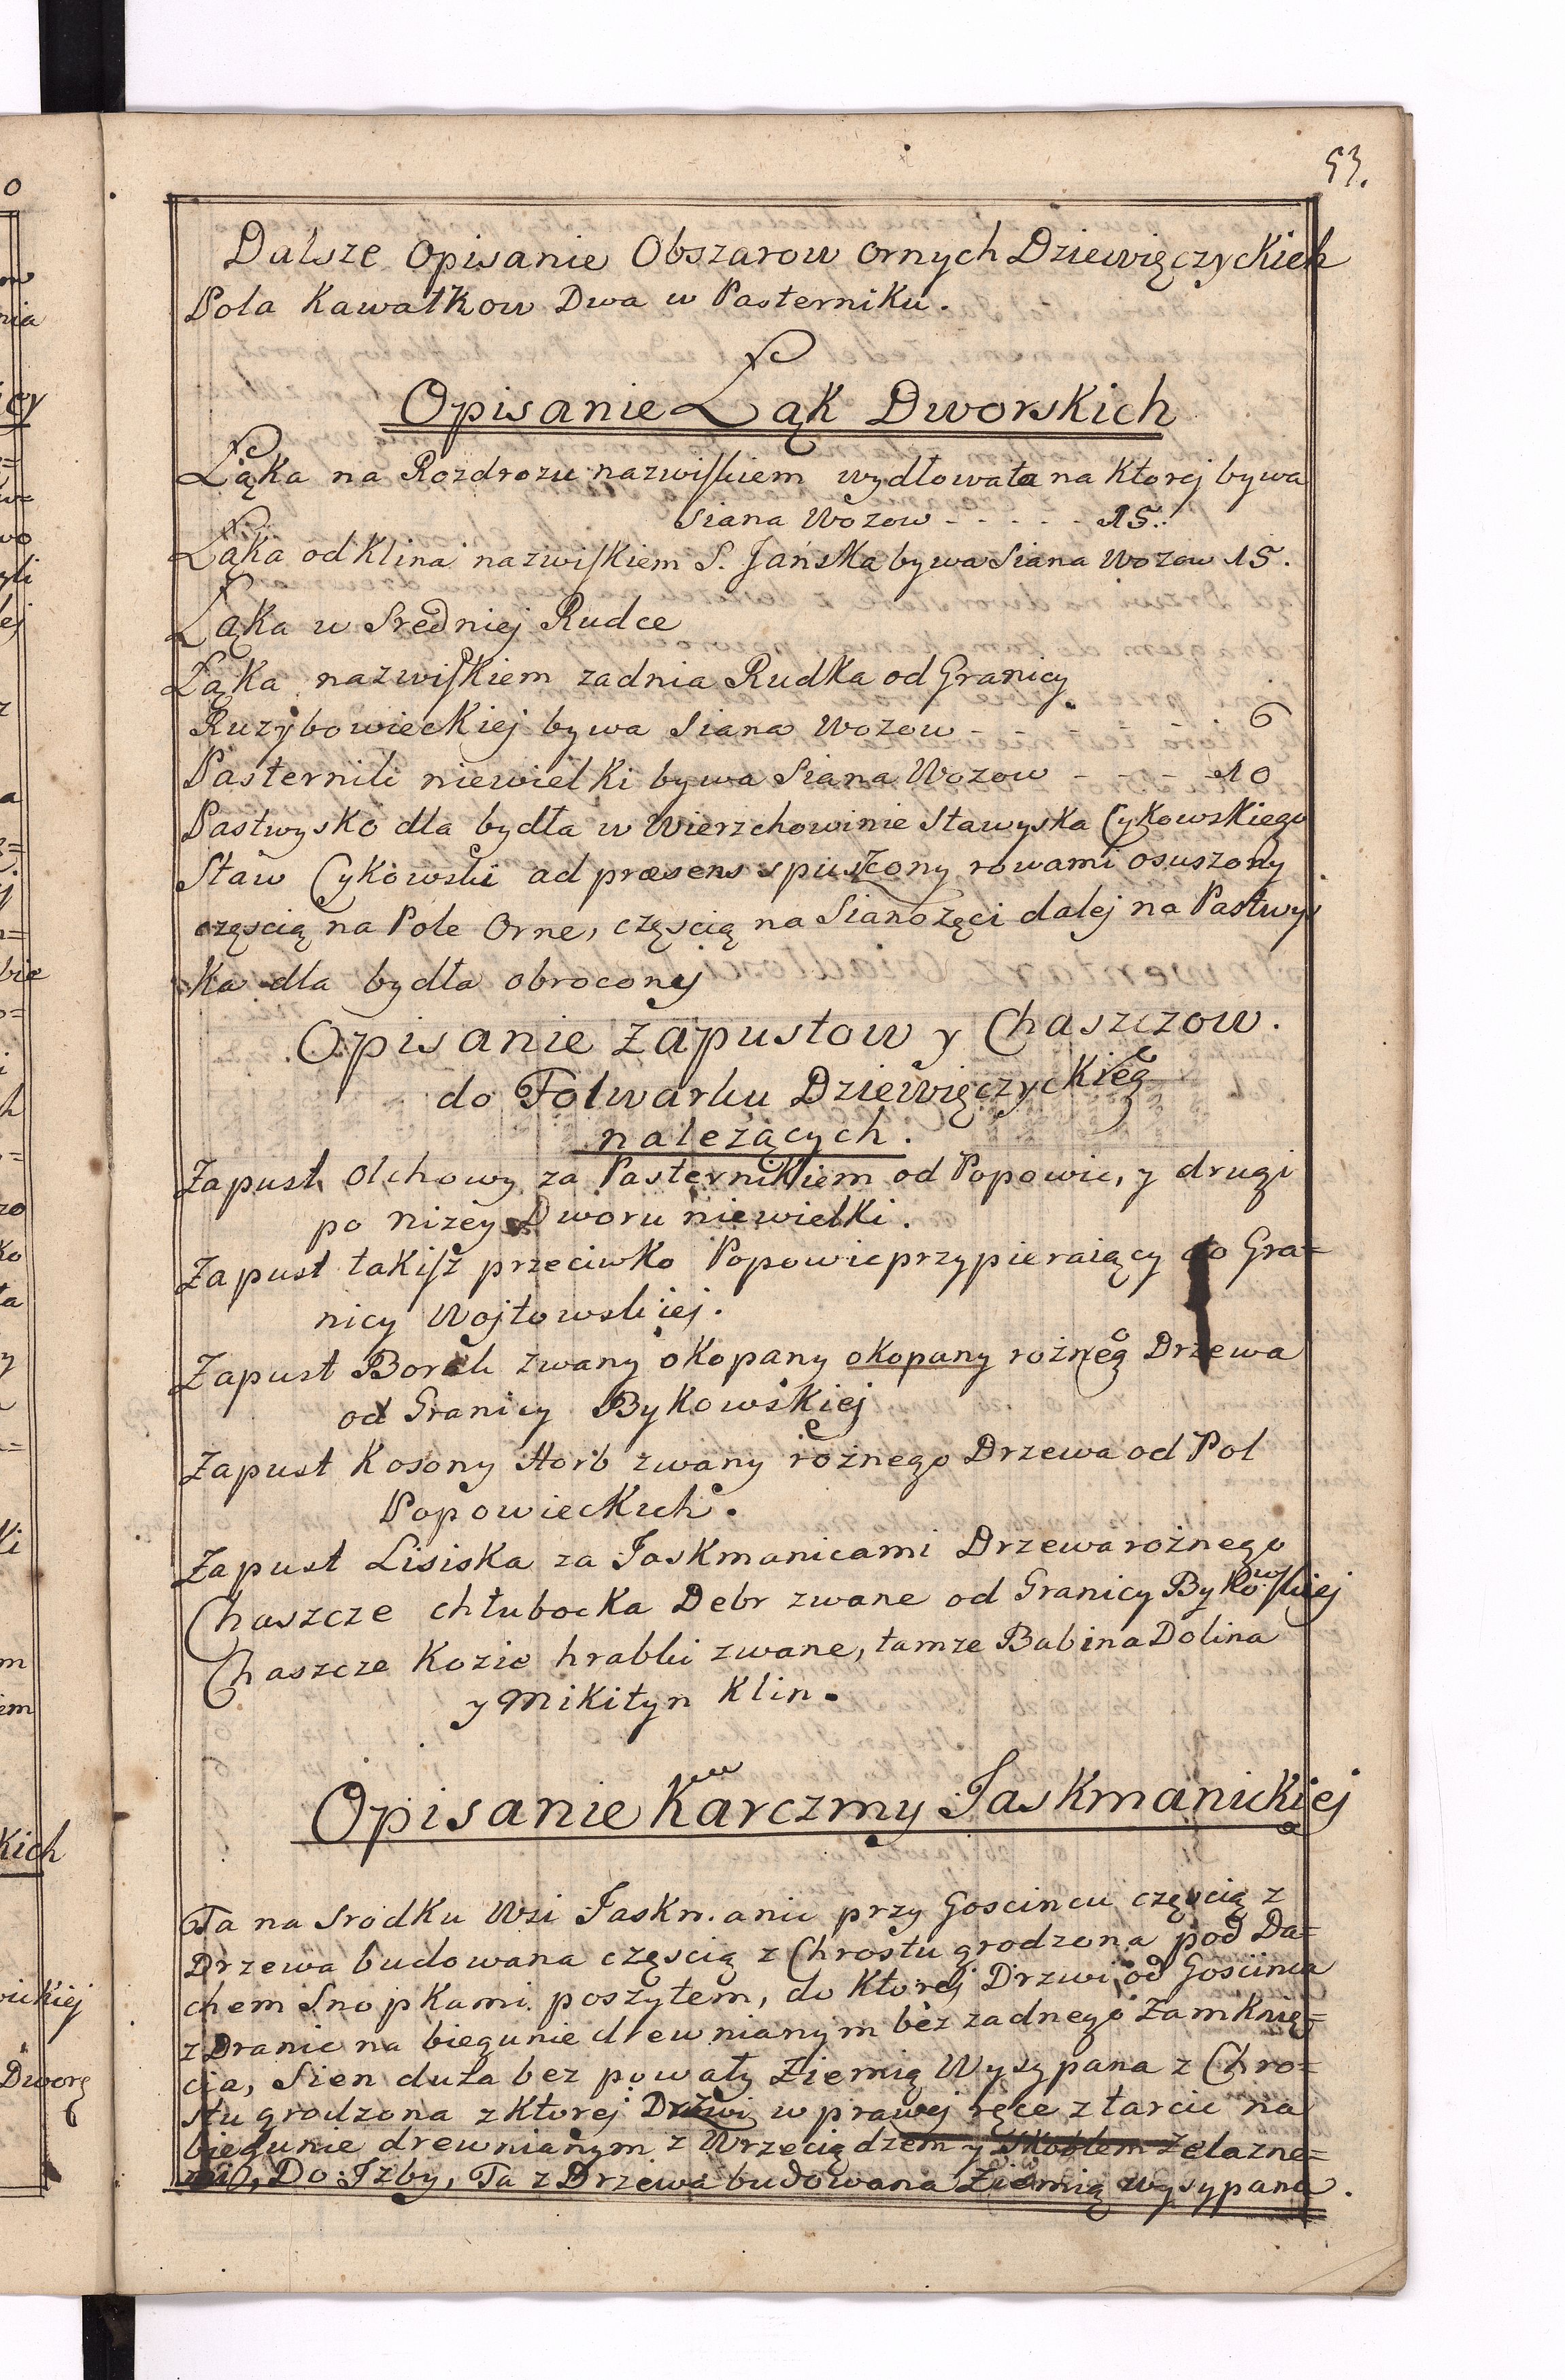 53.
Dalsze Opisanie Obszarow ornych Dziewięczyckich
Pola Kawałkow Dwa w Pasterniku.
Opisanie Łąk Dworskich
Łąka na Rozdrozu nazwiskiem wydłowata na Ktorej bywa
Siana Wozow - - - - - 15.
Łąka od Klina nazwiskiem S. Jańska bywa Siana Wozow 15.
Łąka w Sredniej Rudce
Łąka nazwiskiem zadnia Rudka od Granicy
Ruzybowieckiej bywa Siana Wozow - - - - 6
Pasternik niewielki bywa Siana Wozow - - - - 10
Pastwysko dla bydła w Wierzchowinie Stawyska Cykowskiego
Staw Cykowski ad præsens spuszczony rowami osuszony
częscią na Pole Orne, częscią na Sianozęci dalej na Pastwys
ka dla bydła obrocony
Opisanie Zapustow y Chaszczow.
do Folwarku Dziewięczyckieg°
nalezących.
Zapust Olchowy za Pasternikiem od Popowic, y drugi
po nizey Dworu niewielki.
Zapust takisz przeciwko Popowic przypieraiący do Gra=
nicy Wojtowskiej.
Zapust Borek zwany okopany okopany rożneg° Drzewa
od Granicy Bykowskiej
Zapust Kosony Horb zwany rożnego Drzewa od Pol
Popowieckich.
Zapust Lisiska za Jaskmanicami Drzewa rożnego
Chaszcze chłubocka Debr zwane od Granicy Bykowskiej
Chaszcze Kozie hrabki zwane, tamze Babina Dolina
y Mikityn Klin.
Opisanie Karczmy Jaskmanickiej
Ta na srodku Wsi Jaskmanic przy Goscincu częscią z
Drzewa budowana częscią z Chrostu grodzona pod Da=
chem Snopkami poszytem, do Ktorej Drzwi od Goscinca
z Dranic na biegunie drewnianym bez zadnego Zamknię=
cia, Sien duża bez powały Ziemią Wysypana z Chro=
stu grodzona z Ktorej Drzwi w prawej ręce z tarcic na
biegunie drewnianym z Wrzeciądzem y Skoblem żelazne=
mi, Do Izby, Ta z Drzewa budowana Ziemią wysypana.